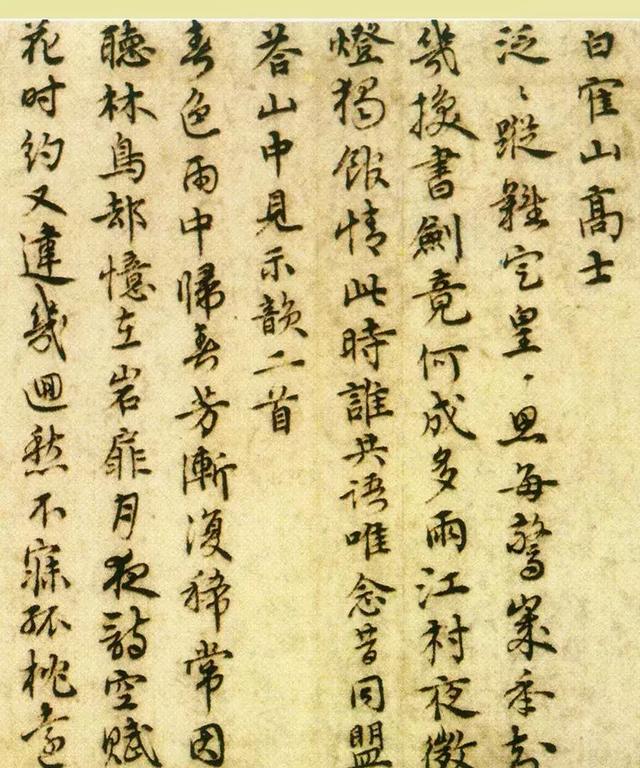 白寉山高士
泛〻蹤難定皇〻思每驚嵗秊知
幾換書劍竟何成多雨江村夜微
燈獨館情此時誰共語唯念昔同盟
荅山中見示韻二首
春色雨中歸春芳漸復稀常因
聽林鳥却憶在岩扉月夜詩空賦
花时約又違幾迴愁不寐孤枕遠